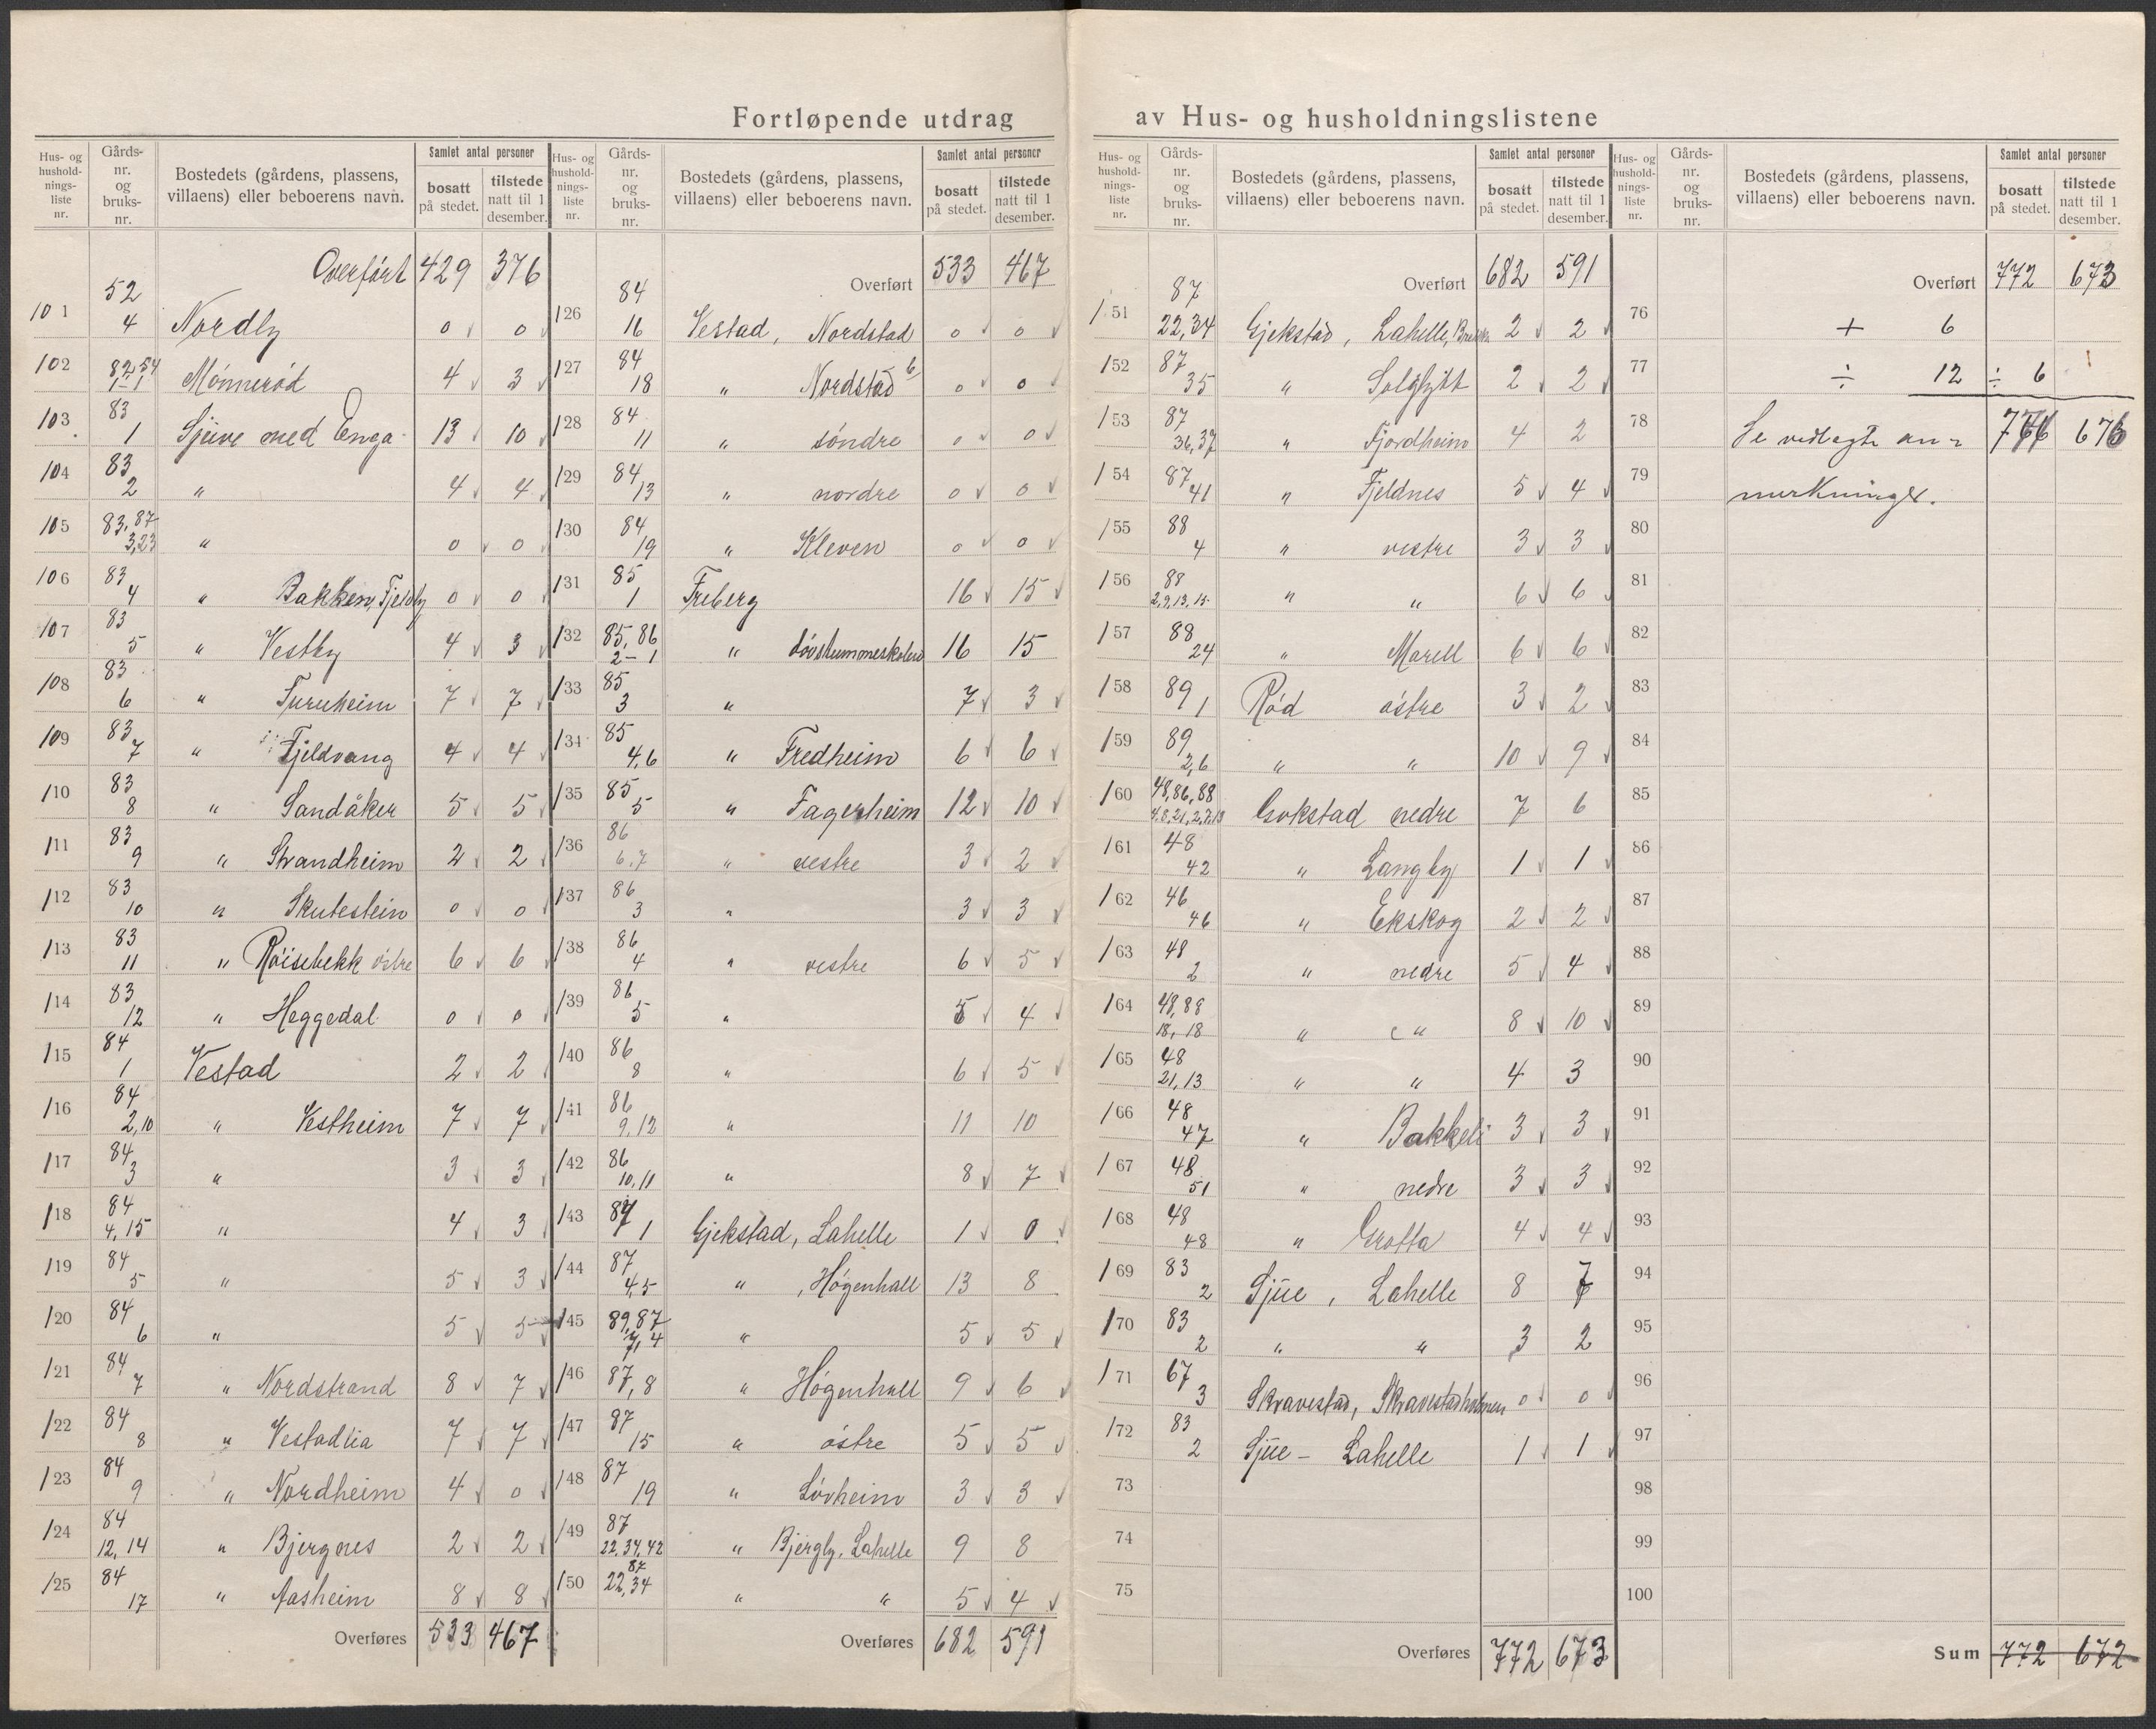 Fortløpende utdrag av Hus- og husholdningslistene
Hus- og husholdnings-liste nr. | Gårds-nr. og bruks-nr. | Bostedets (gårdens, plassens, villaens) eller beboerens navn. | Samlet antal personer | bosatt på stedet. | tilstede natt til 1 desember.
Overført 429 376
101 52 4 Nordby 0 0
102 82,54 1-1 Mønnerød 4 3
103 83 1 Sjuve med Enga 13 10
104 83 2 " 4 4
105 83,87 3,23 " 0 0
106 83 4 " Bakken, Fjeldby 0 0
107 83 5 " Vestby 4 3
108 83 6 " Furuheim 7 7
109 83 7 " Fjeldvang 4 4
110 83 8 " Sandåker 5 5
111 83 9 " Strandheim 2 2
112 83 10 " Skutestein 0 0
113 83 11 " Røisebekk østre 6 6
114 83 12 " Heggedal 0 0
115 84 1 Vestad 2 2
116 84 2,10 " Vestheim 7 7
117 84 3 " 3 3
118 84 4,15 " 4 3
119 84 5 " 5 3
120 84 6 " 5 5
121 84 7 " Nordstrand 8 7
122 84 8 " Vestadlia 7 7
123 84 9 " Nordheim 4 0
124 84 12,14 " Bjergnes 2 2
125 84 17 " Aasheim 8 8
Overføres 533 467
Hus- og husholdnings-liste nr. | Gårds-nr. og bruks-nr. | Bostedets (gårdens, plassens, villaens) eller beboerens navn. | Samlet antal personer | bosatt på stedet. | tilstede natt til 1 desember.
Overført 533 467
126 84 16 Vestad, Nordstad 0 0
127 84 18 " Nordstad b 0 0
128 84 11 " søndre 0 0
129 84 13 " nordre 0 0
130 84 19 " Kleven 0 0
131 85 1 Freberg 16 15
132 85,86 2-1 " døvstummeskolen 16 15
133 85 3 " 7 3
134 85 4,6 " Fredheim 6 6
135 85 5 " Fagerheim 12 10
136 86 6,7 " vestre 3 2
137 86 3 " 3 3
138 86 4 " vestre 6 5
139 86 5 " 5 4
140 86 8 " 6 5
141 86 9,12 " 11 10
142 86 10,11 " 8 7
143 87 1 Gjekstad, Lahelle 1 0
144 87 4,5 " , Høgenhall 13 8
145 89,87 7,4 " 5 5
146 87,8 " Høgenhall 9 6
147 87 15 " østre 5 5
148 87 19 " Løvheim 3 3
149 87 22,34,42 " Bjergly, Lahelle 9 8
150 87 22,34 " " 5 4
Overføres 682 591
Hus- og husholdnings-liste nr. | Gårds-nr. og bruks-nr. | Bostedets (gårdens, plassens, villaens) eller beboerens navn. | Samlet antal personer | bosatt på stedet. | tilstede natt til 1 desember.
Overført 682 591
151 87 22,34 Gjekstad, Lahelle, 2 2
152 87 35 " Solglytt 2 2
153 87 36,37 " Fjordheim 4 2
154 87 41 " Fjeldnes 5 4
155 88 4 " vestre 3 3
156 88 2,9,13,15 " " 6 6
157 88 24 " Marell 6 6
158 89 1 Rød østre 3 2
159 89 2,6 " " 10 9
160 48,86,88 Gokstad nedre 7 6
161 48 42 " Langby 1 1
162 46 46 " Ekskog 2 2
163 48 2 " nedre 5 4
164 48,88 18,18 " " 8 10
165 48 21,13 " " 4 3
166 48 47 " Bakkeli 3 3
167 48 51 " nedre 3 3
168 48 48 " Grotta 4 4
169 83 2 Sjüe, Lahelle 8 7
170 83 2 " " 3 2
171 67 3 Skravestad, Skravestadholmen 0 0
172 83 2 Sjüe - Lahelle 1 1
73
74
75
Overføres 772 673
Hus- og husholdnings-liste nr. | Gårds-nr. og bruks-nr. | Bostedets (gårdens, plassens, villaens) eller beboerens navn. | Samlet antal personer | bosatt på stedet. | tilstede natt til 1 desember.
Overført 772 673
76 + 6
77 ÷ 12 ÷ 6
78 Se vedlagte an= 766 676
79 merkninger.
80
81
82
83
84
85
86
87
88
89
90
91
92
93
94
95
96
97
98
99
100
Sum 772 672